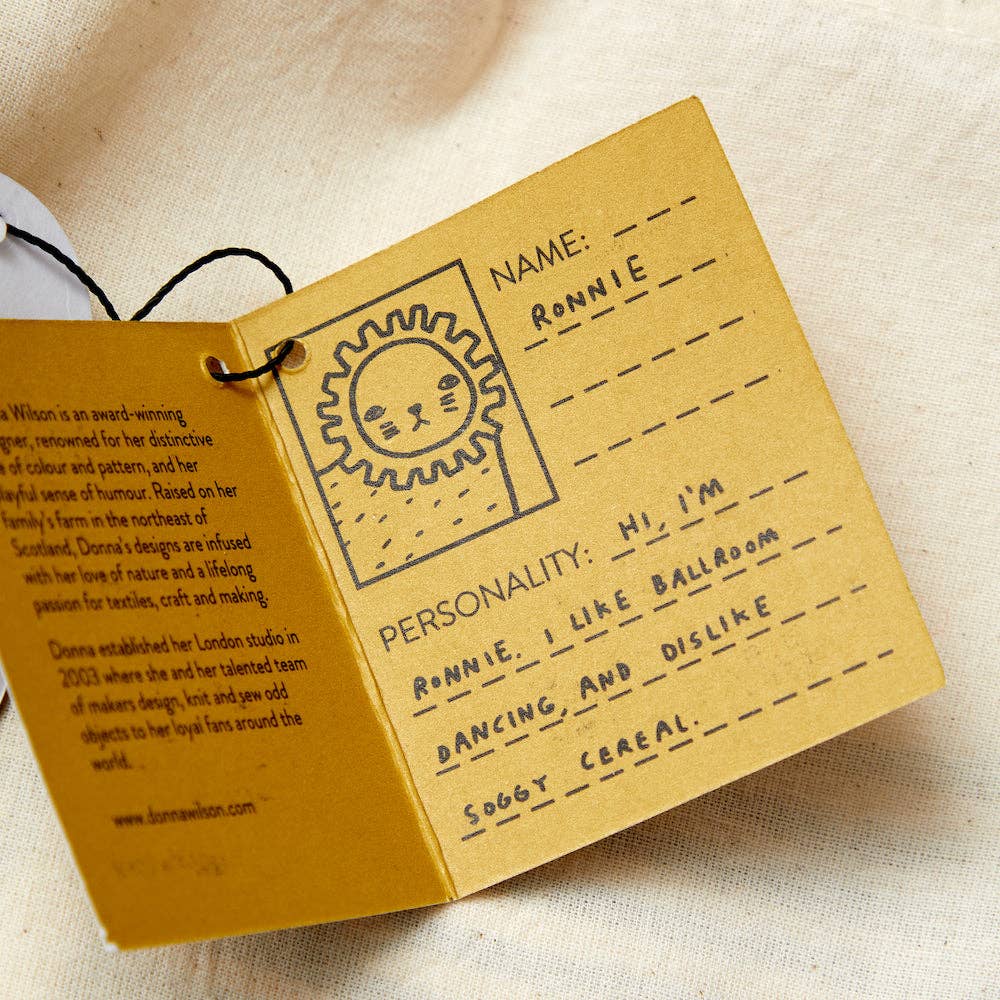 a Wilson is an award-winning
gner, renowned for her distinctive
of colour and pattern, and her
playful sense of humour. Raised on her
family's farm in the northeast of
Scotland, Donna's designs are infused
with her love of nature and a lifelong
passion for textiles, craft and making.
Donna established her London studio in
2003 where she and her talented team
of makers design, knit and sew odd
objects to her loyal fans around the
world.
www.donnawilson.com
NAME:
RONNIE
PERSONALITY: HI, I'M
RONNIE. I LIKE BALLROOM
DANCING, AND DISLIKE
SOGGY CEREAL.